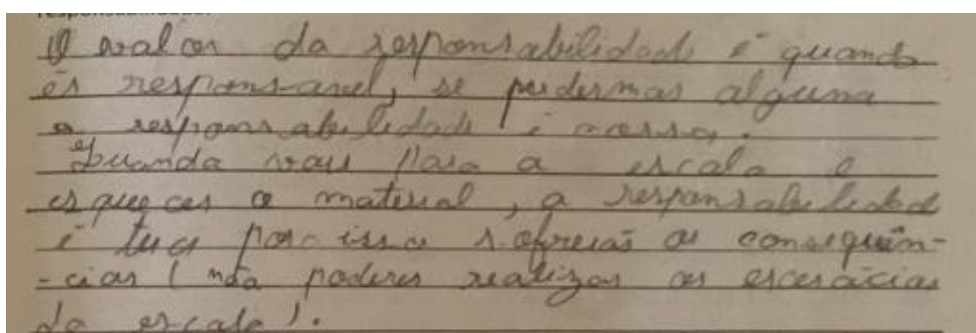 O valor da responsabilidade é quando
és responsavel, se perdermos alguma
a responsabilidade é nossa.
Quando vais para a escola e
esqueces o material, a responsabilidade
é tua por isso sofrerás as consequên-
-cias (não poderes realizar os escercícios
da escola).